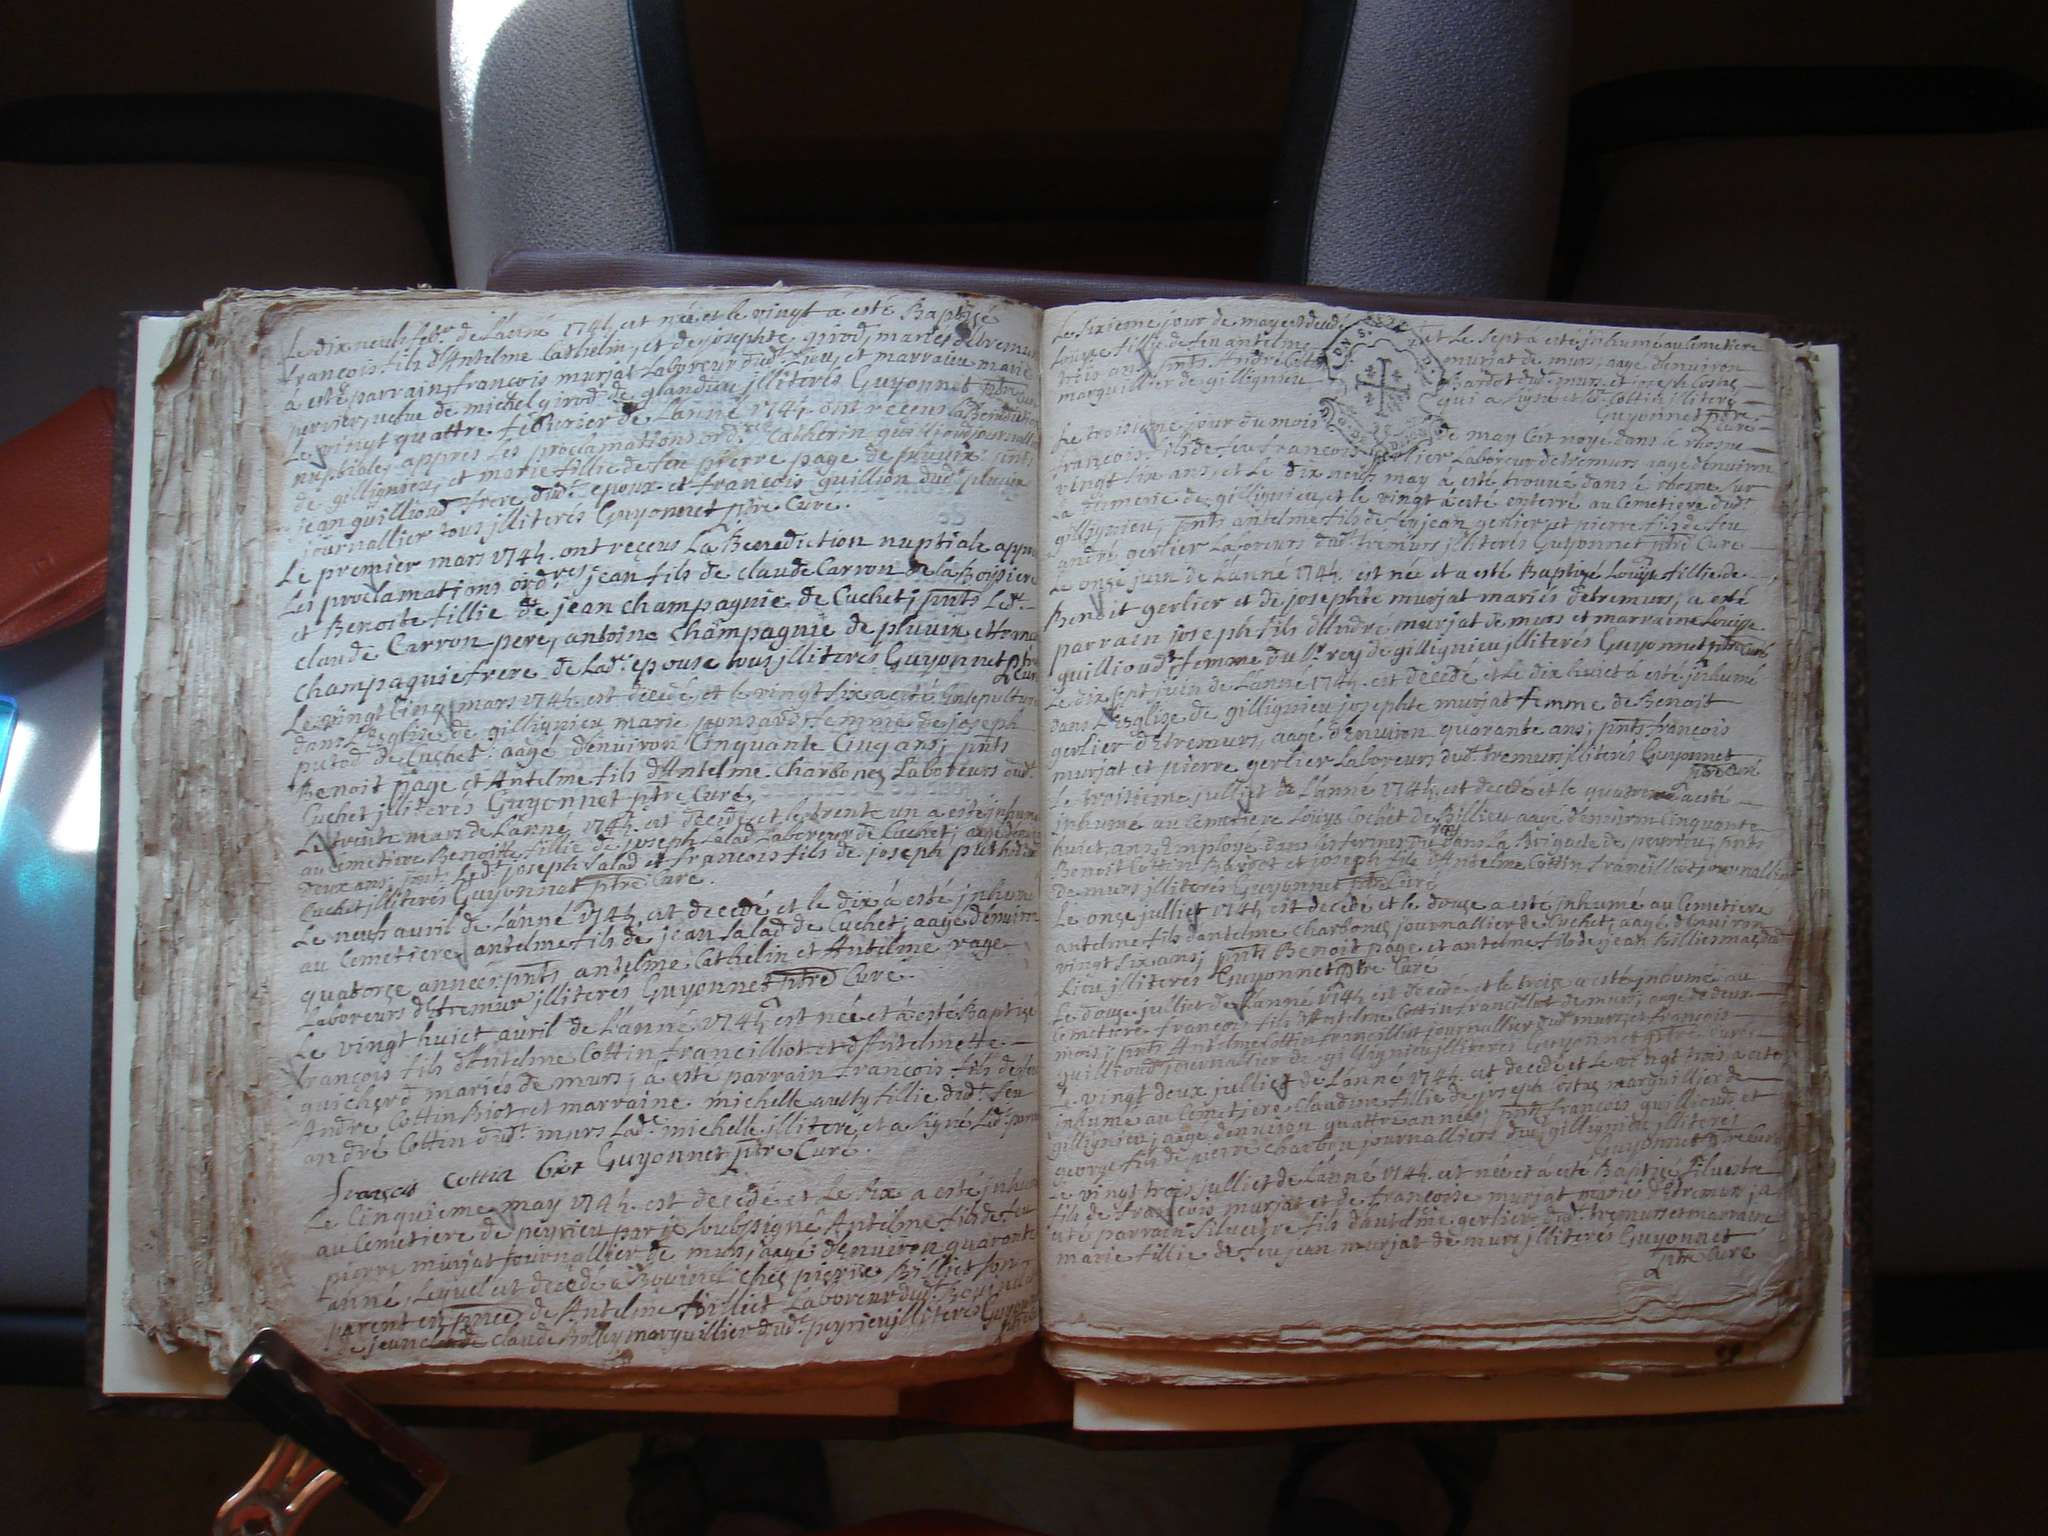 Le dix neufs feb.r de L'anné 1744 est née et le vingt á esté Baptizé
francois fils d'Antelme Cathelin, et de josephte girod mariés d'etremurs
á esté parrain francois murjat Laboreur dud.t Lieu, et marraine marie
pernier, veuve de michel girod de glandieu jlliterés Guyonnet ptre Curé
Le vingt quattre febvrier de L'anné 1744 ont reçeus la Benediction
nuptiale appres Les proclamations ord.res Catherin guillioud journallier
de gillignieu, et marie fillie de feu pierre page de pluvix pnts
jean guillioud frere dud.t epoux et francois guillion dud.t pluvix
journallier tous jlliterés Guyonnet ptre Curé.
Le premier mars 1744. ont reçeus La Benediction nuptiale appres
Les proclamations ord.res jean fils de claude Carron de la Boysiere
et Benoite fillie de jean champagnie de Cuchet; pnts Led.t
claude Carron pere, antoine champagnie de pluvix et francois
champagnie frere de Lad.e epouse tous jlliterés Guyonnet ptre
Curé
Le vingt Cinq mars 1744. est decedé et le vingt six a esté Ensepulturé
dans L'Esglise de gilligneu marie ponsard femme de joseph
putod de Cuchet: aagé d'environ Cinquante Cinq ans; pnts
Benoit page et Antelme fils d'Antelme Charbonez Laboreurs dud.t
Cuchet jlliterés Guyonnet ptre Curé,
Le trente mars de L'anné 1744. est decedé, et le trente un a esté jnhumé
au Cemetiere Benoitte fillie de joseph Salad Laboreur de Cuchet; aagé d'environ
Deux ans; pnts Led.t joseph Salad et francois fils de joseph puthod
Cuchet jlliterés Guyonnet ptre Curé.
Le neufs avril de L'anné 1744. est decedé et le dix á esté jnhumé
au Cemetiere antelme fils de jean Salad de Cuchet; aagé d'environ
quatorze anneés; pnts antelme Cathelin et Antelme rage
Laboreurs d'Etremur jlliterés Guyonnet ptre Curé.
Le vingt huict avril de L'anné 1744 est née et á esté Baptizé
francois fils d'Antelme Cottin francilliot et d'Antelmette
guicherd mariés de murs; á esté parrain francois fils de feu
André Cottin Biot et marraine michelle fillie dud.t feu
andré Cottin dud.t murs Lad.e michelle jllitere, et a signé Led.t parrain
françois Cottin Guyonnet ptre Curé.
Le Cinquieme may 1744. est decedé et Le six a esté jnhumé
au Cemetiere de peyrieu par je Soubssigné Antelme fils de feu
pierre murjat journallier de murs, aagé d'environ quarante
anné, Lequel est decedé á chez pierre Billiet son
parent en pnce de Antelme Billiet Laboreur dud.t
de jean claude claude marguillier dud.t peyrieu jlliterés Guyonnet
Le sixieme jour de may est decedé et Le sept á esté jnhumé au Cemetiere
Louyse fillie de feu antelme murjat de murs, aagé d'environ
trois ans pnts André Cottin Bardot dud.t murs et joseph Costaz
marguillier de gilligneu qui a signé et led.t Cottin jllitere
Guyonnet ptre
Curé
Le troisieme jour du mois de may s'est noyé dans le rhosne
francois fils de feu francois gerlier Laboreur d'etremurs aagé d'environ
vingt six ans, et Le dix neufs may á esté trouvé dans le rhosne sur
La de gilligneu, et le vingt á esté enterré au Cemetiere dud.t
gilligneu; pnts antelme fils de feu jean gerlier et pierre fils de feu
andré gerlier Laboreurs dud.t tremurs jlliterés Guyonnet ptre Curé
Le onze juin de L'anné 1744. est née et a esté Baptizé Louyse fillie de
Benoit gerlier et de josephte murjat mariés d'etremurs, a esté
parrain joseph fils d'Andre murjat de murs et marraine Louyse
guillioud femme du S.r rey de gilligneu jlliterés Guyonnet ptre Curé
Le dix sept juin de L'anné 1744. est decedé et Le dix huict á esté jnhumé
dans L'Esglise de gilligneu josephte murjat femme de Benoit
gerlier d'Etremurs, aagé d'Environ quarante ans; pnts francois
murjat et pierre gerlier Laboreurs dud.t tremurs jlliterés Guyonnet
ptre Curé
Le troisieme julliet de L'anné 1744. est decedé et le quatrieme a esté
jnhumé au Cemetiere Louys Cochet de Billieu aagé d'environ Cinquante
huict ans, Employé dans les fermes du roy dans La Brigade de peyrieu; pnts
Benoit Cottin Bardot et joseph fils d'Antelme Cottin francilliot journalliers
de murs jlliterés Guyonnet ptre Curé
Le onze julliet 1744 est decedé et le douze a esté jnhumé au Cemetiere
antelme fils d'antelme Charbonez journallier de Cuchet; aagé d'Environ
vingt six ans; pnts Benoit page et antelme fils de jean Billiermaz dud.t
Lieu jlliterés Guyonnet ptre Curé
Le douze julliet de L'anné 1744 est decedé et le treize a esté jnhumé au
Cemetiere francois fils d'Antelme Cottin francilliot de murs; aagé de deux
mois; pnts Antelme Cottin francilliot journallier dud.t murs, et francois
guillioud journallier de gilligneu jlliterés Guyonnet ptre Curé
Le vingt deux julliet de L'anné 1744. est decedé et Le vingt trois a esté
jnhumé au Cemetiere Claudine fillie de joseph Costaz marguillier de
gilligneu; aagé d'environ quattre anneés; pnts francois guillioud et
george fils de pierre charbon journalliers dud.t gilligneu jlliterés
Guyonnet ptre Curé
Le vingt trois julliet de L'anné 1744. est née et á esté Baptizé Silvestre
fils de francois murjat et de francoise murjat mariés d'Etremur; a
esté parrain Silvestre fils d'antelme gerlier dud.t tremurs et marraine
marie fillie de feu jean murjat de murs jlliterés Guyonnet
ptre Curé